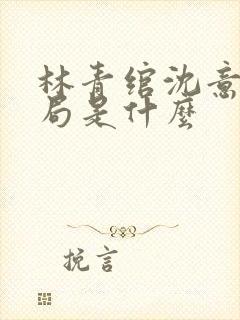 林青绾沈意
局是什麼
挽言